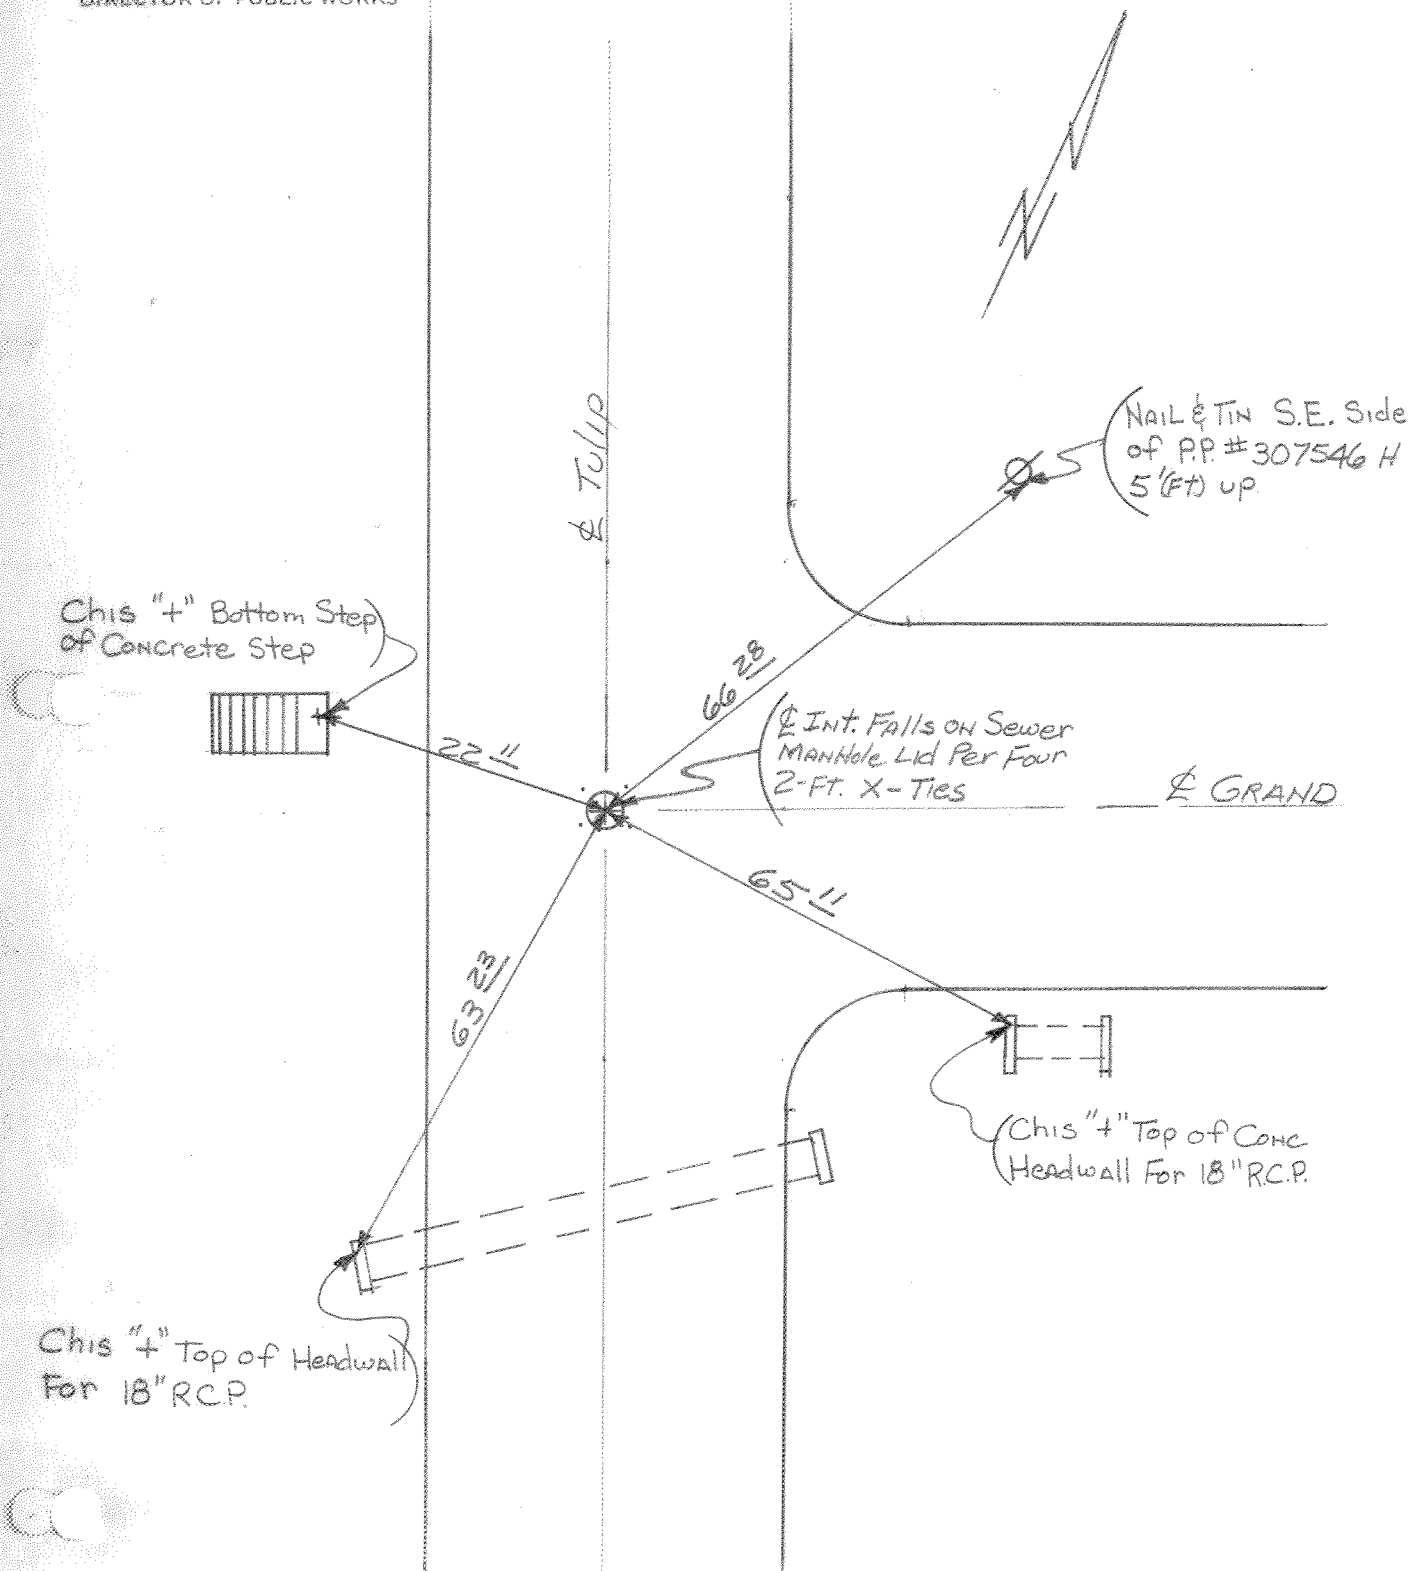 DIRECTOR OF PUBLIC WORKS
N
NAIL & TIN S.E. Side
of P.P. #307546 H
5'(Ft) up
℄ Tulip
Chis "+" Bottom Step
of Concrete Step
66 28
22 11
℄ INT. FALLS ON Sewer
MANHole Lid Per Four
2-FT. X-Ties
℄ GRAND
65 11
63 23
Chis "+" Top of CONC
HeADWAll For 18" R.C.P.
Chis "+" Top of HeADWAll
For 18" R.C.P.